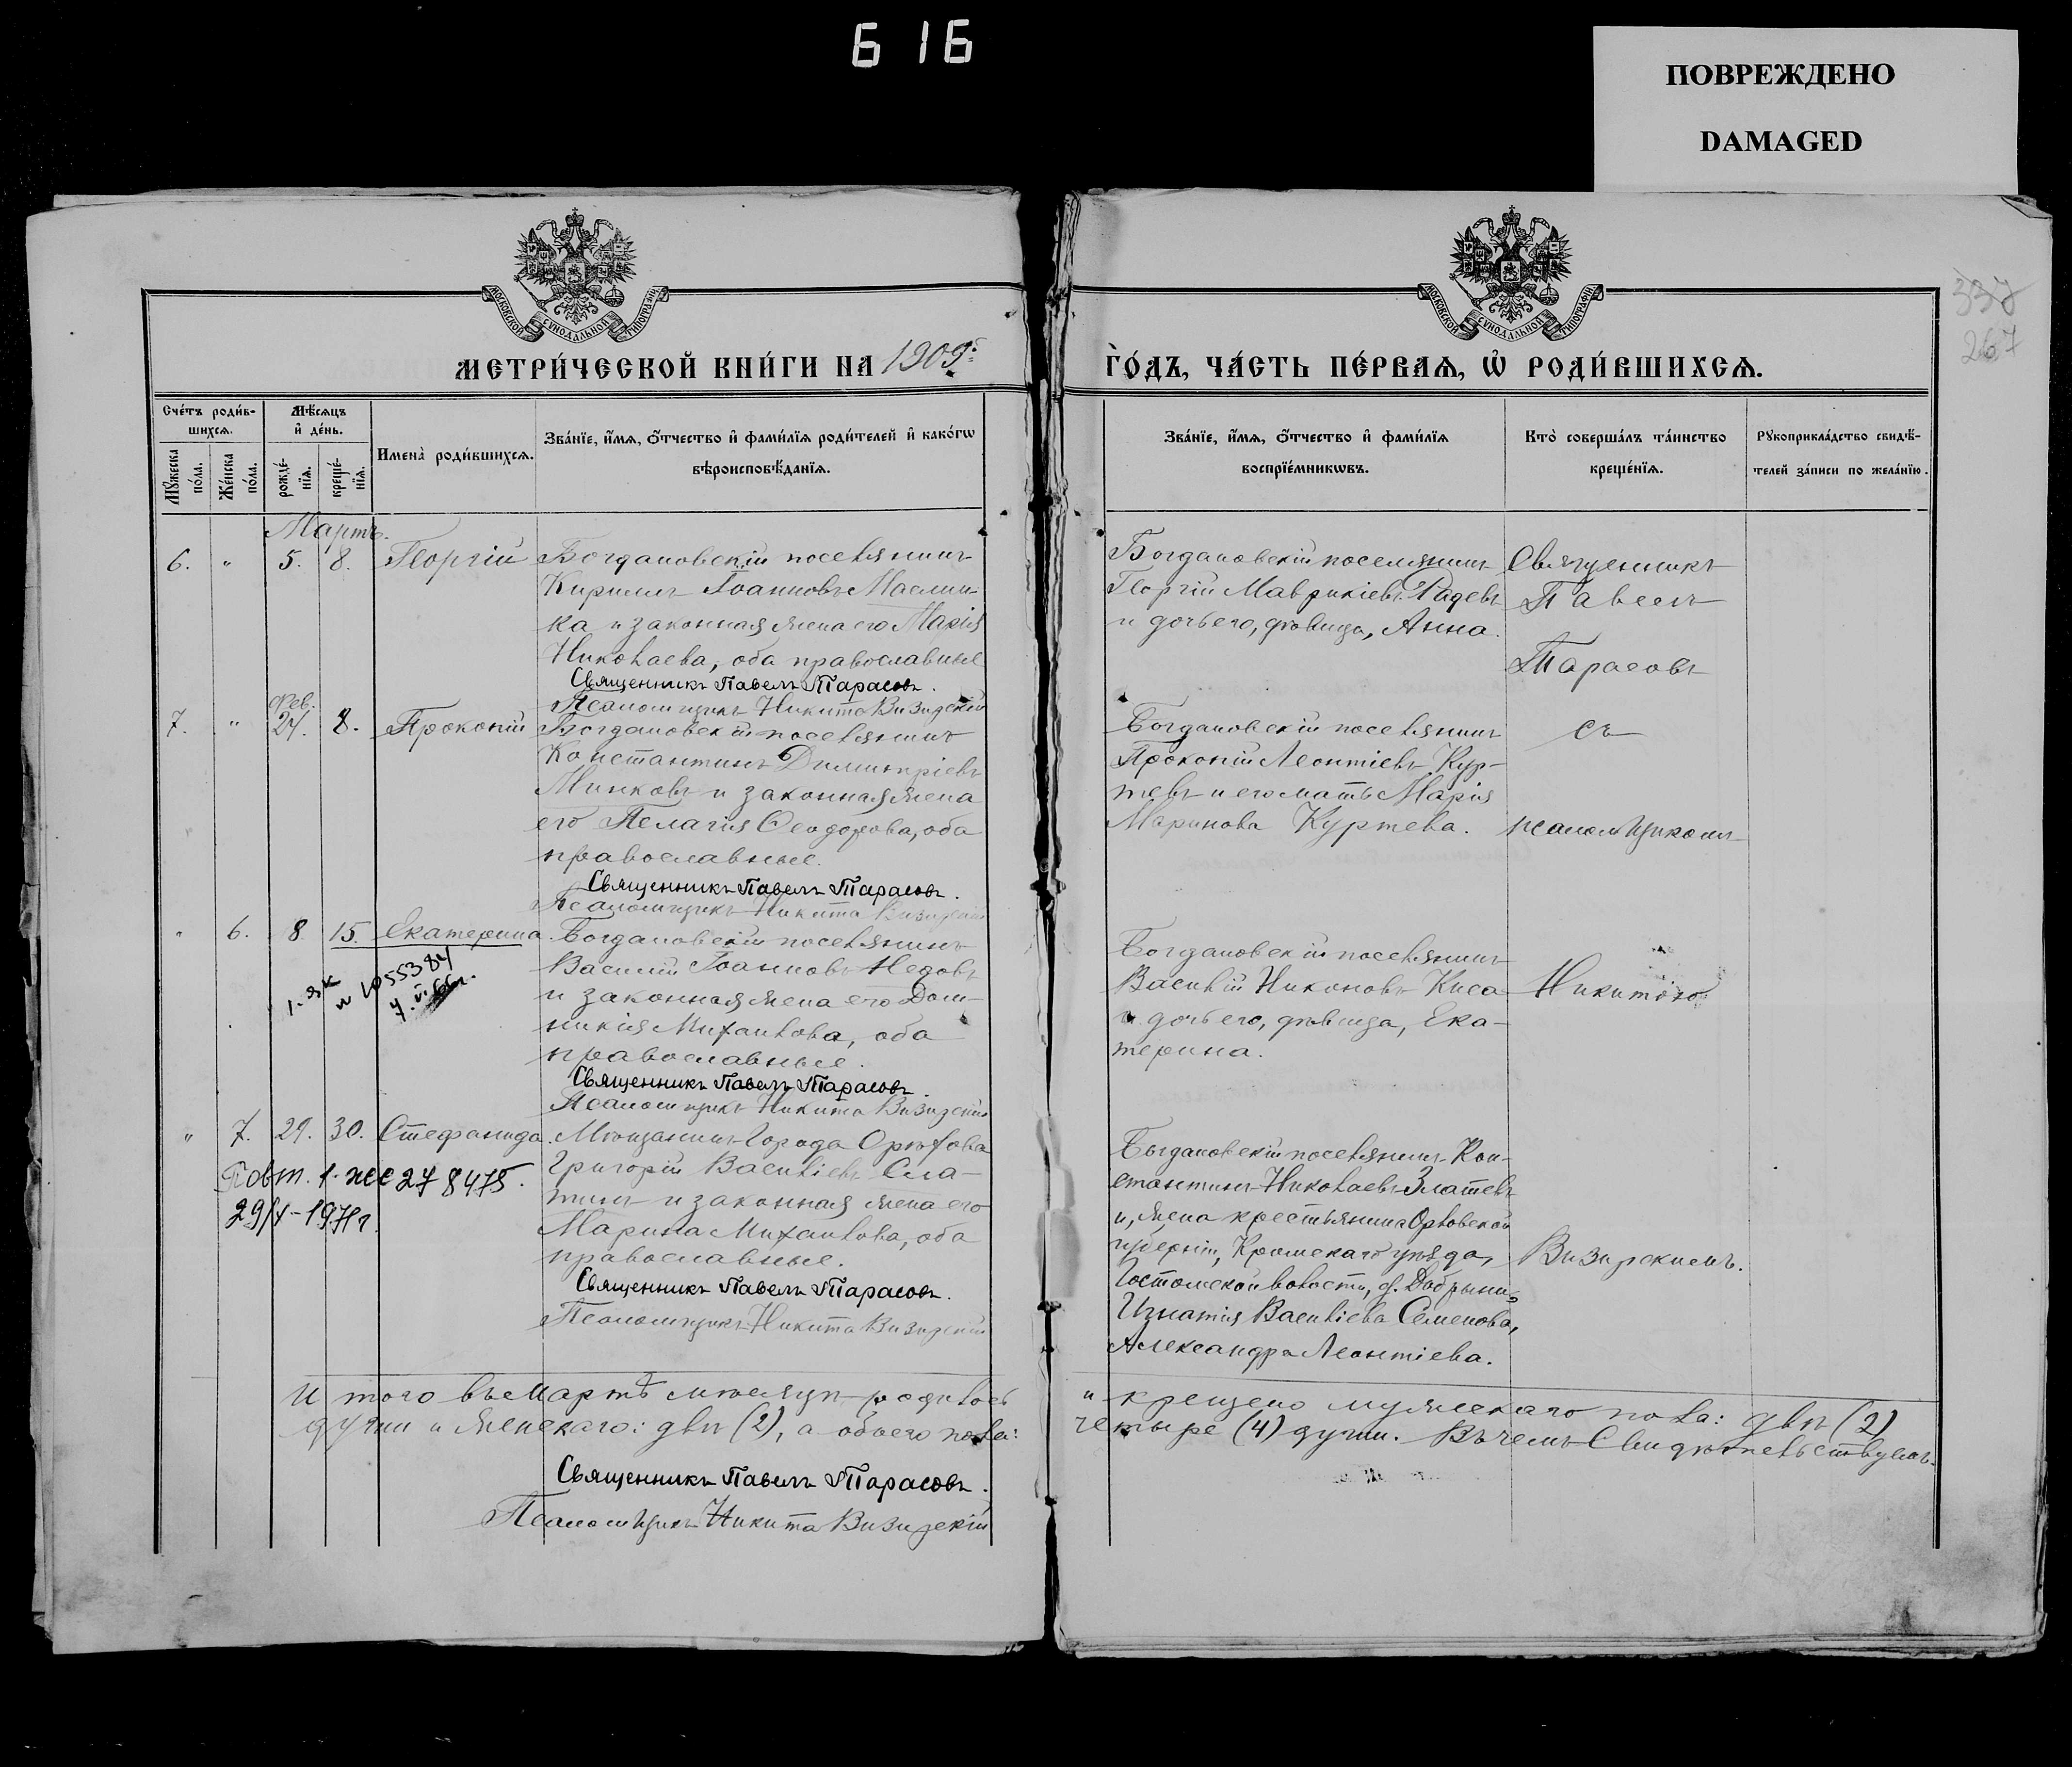 616
ПОВРЕЖДЕНО
DAMAGED
МОСКОВСКОЙ СѴНОДАЛЬНОЙ ТИПОГРАФІИ
МОСКОВСКОЙ СѴНОДАЛЬНОЙ ТИПОГРАФІИ
337
267
МЕТРИ́ЧЕСКОЙ КНИ́ГИ НА 1909г.
ГО́ДЪ, ЧА́СТЬ ПЕ́РВАѦ, Ѡ҆ РОДИ́ВШИХСѦ.
Сче́тъ роди́в-
шихсѧ.
Мѣ́сѧцъ
и҆ де́нь.
Мꙋ́жеска по́ла.
Же́нска по́ла.
рожде́-нїѧ.
креще́-нїѧ.
Имена̀ роди́вшихсѧ.
Зва́нїе, и҆́мѧ, ѻ҆́тчество и҆ фами́лїѧ роди́телей и҆ како́гѡ
вѣроисповѣ́данїѧ.
Зва́нїе, и҆́мѧ, ѻ҆́тчество и҆ фами́лїѧ
воспрїе́мникѡвъ.
Кто̀ соверша́лъ та́инство
креще́нїѧ.
Рꙋкоприкла́дство свидѣ́-
телей за́писи по жела́нїю.
Мартъ.
6. " 5. 8. Георгій Богдановскій поселянинъ
Кириллъ Іоанновъ Маслин-
ка и законная жена его Марія
Николаева, оба православные
Священникъ Павелъ Тарасовъ.
Псаломщикъ Никита Визирскій
Богдановскій поселянинъ
Георгій Маврикіевъ Радевъ
и дочь его, дѣвица, Анна.
Священникъ
Павелъ
Тарасовъ
Фев.
7. " 24. 8. Прокопій Богдановскій поселянинъ
Константинъ Димитріевъ
Минковъ и законная жена
его Пелагія Ѳеодорова, оба
православные.
Священникъ Павелъ Тарасовъ.
Псаломщикъ Никита Визирскій
Богдановскій поселянинъ
Прокопій Леонтіевъ Кур-
тевъ и его мать Марія
Маринова Куртева.
съ
псаломщикомъ
" 6. 8 15. Екатерина Богдановскій поселянинъ
Василій Іоанновъ Недовъ
и законная жена его Дом-
никія Михаилова, оба
православные.
Священникъ Павелъ Тарасовъ.
Псаломщикъ Никита Визирскій
1055384
Богдановскій поселянинъ
Василій Никоновъ Киса
и дочь его, дѣвица, Ека-
терина.
Никитою
" 7. 29. 30. Стефанида. Мѣщанинъ города Орѣхова
Григорій Василіевъ Сла-
тинъ и законная жена его
Марина Михаилова, оба
православные.
Священникъ Павелъ Тарасовъ.
Псаломщикъ Никита Визирскій
Повт. 1-же 278475.
29/X-1971г.
Богдановскій поселянинъ Кон-
стантинъ Николаевъ Златевъ
и, жена крестьянина Орловской
губерніи, Кромскаго уѣзда,
Гостомской волости, д. Добрыни,
Игнатія Василіева Семенова,
Александра Леонтіева.
Визирскимъ.
И того въ Мартѣ мѣсяцѣ родилось
и крещено мужескаго пола: двѣ (2)
души и женскаго: двѣ (2), а обоего пола:
четыре (4) души. Въ чемъ Свидѣтельствуемъ.
Священникъ Павелъ Тарасовъ.
Псаломщикъ Никита Визирскій